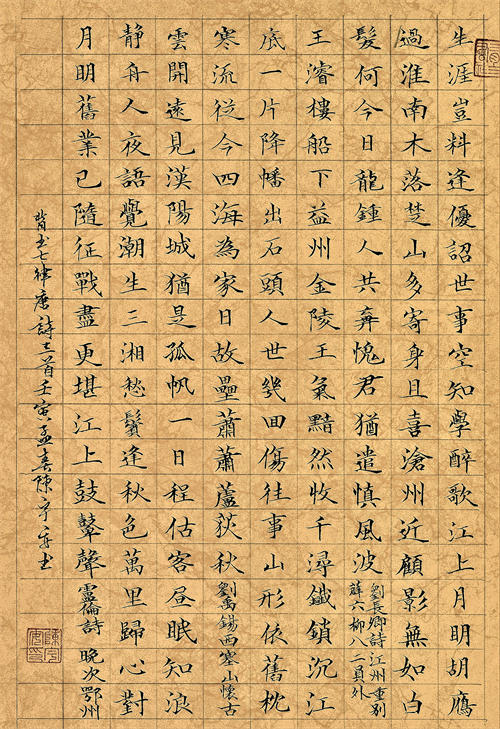 生涯豈料逢優詔世事空知學醉歌江上月明胡鴈
過淮南木落楚山多寄身且喜滄州近顧影無如白
髮何今日龍鍾人共棄愧君猶遣慎風波
劉長卿詩江州重別
薛六柳八二員外
王濬樓船下益州金陵王氣黯然收千尋鐵鎖沉江
底一片降幡出石頭人世幾回傷往事山形依舊枕
寒流從今四海為家日故壘蕭蕭蘆荻秋
劉禹錫西塞山懷古
雲開遠見漢陽城猶是孤帆一日程估客昼眠知浪
靜舟人夜語覺潮生三湘愁鬢逢秋色萬里歸心對
月明舊業已隨征戰盡更堪江上鼓鼙聲
盧倫詩 晚次鄂州
背書七律唐詩三首壬寅孟春陳書